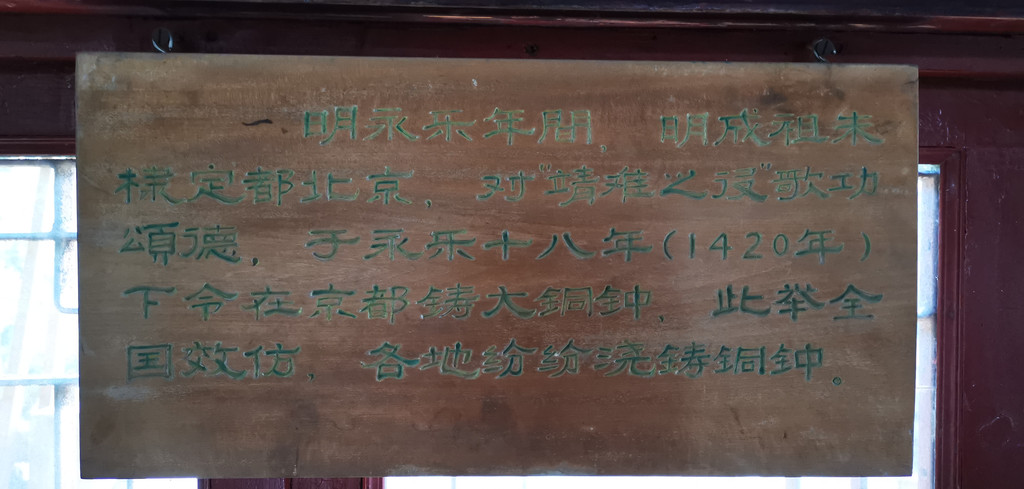 明永乐年間，明成祖朱
棣定都北京，对“靖难之役”歌功
頌德，于永乐十八年(1420年)
下令在京都铸大銅钟，此举全
国效仿，各地纷纷浇铸銅钟。